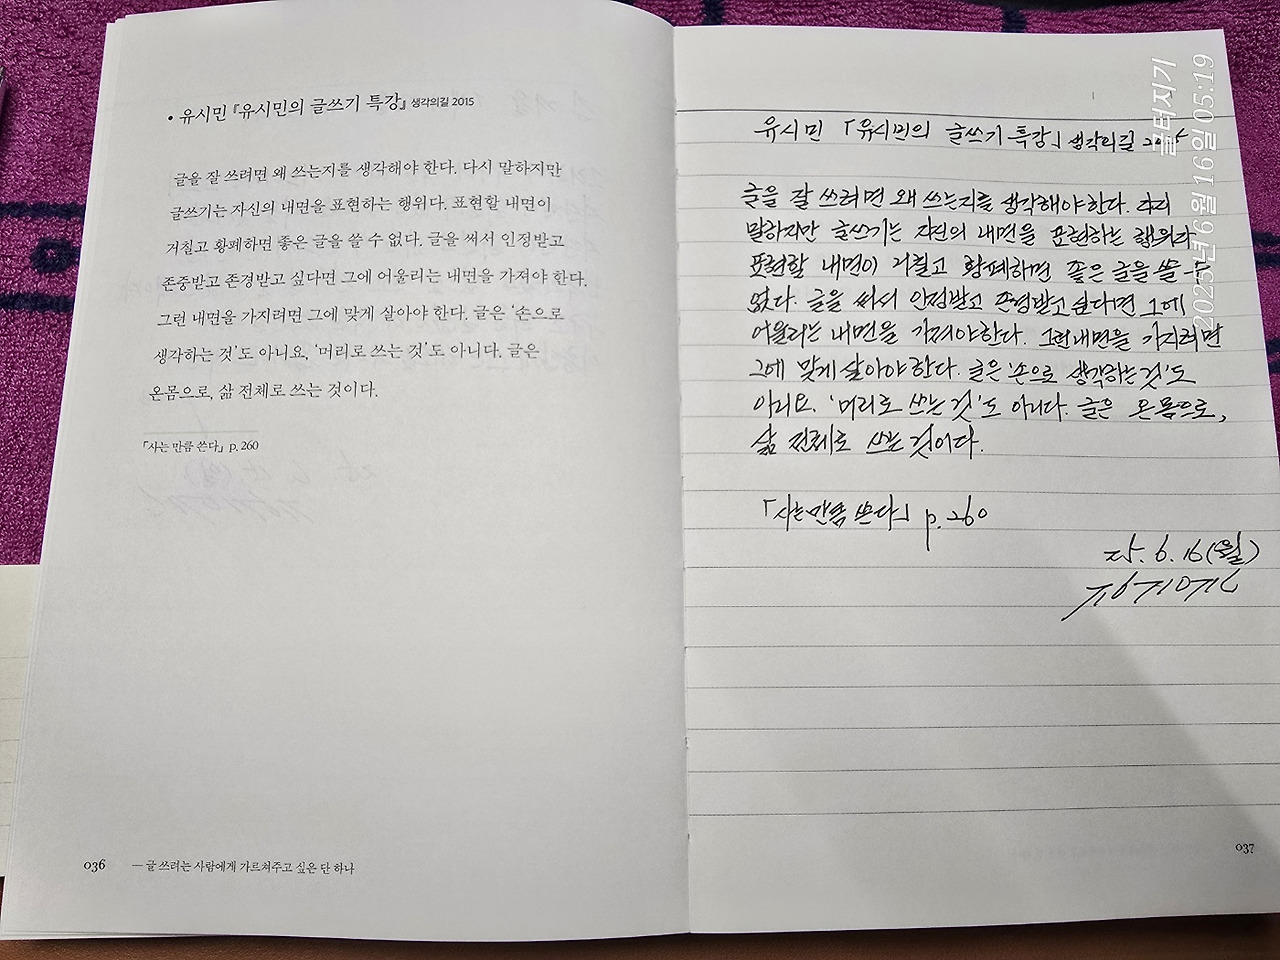 • 유시민 『유시민의 글쓰기 특강』 생각의길 2015
글을 잘 쓰려면 왜 쓰는지를 생각해야 한다. 다시 말하지만
글쓰기는 자신의 내면을 표현하는 행위다. 표현할 내면이
거칠고 황폐하면 좋은 글을 쓸 수 없다. 글을 써서 인정받고
존중받고 존경받고 싶다면 그에 어울리는 내면을 가져야 한다.
그런 내면을 가지려면 그에 맞게 살아야 한다. 글은 ‘손으로
생각하는 것’도 아니요, ‘머리로 쓰는 것’도 아니다. 글은
온몸으로, 삶 전체로 쓰는 것이다.
「사는 만큼 쓴다」 p. 260
036 — 글 쓰려는 사람에게 가르쳐주고 싶은 단 하나
유시민 「유시민의 글쓰기 특강」 생각의길 2015
글을 잘 쓰려면 왜 쓰는지를 생각해야 한다. 다시
말하지만 글쓰기는 자신의 내면을 표현하는 행위다.
표현할 내면이 거칠고 황폐하면 좋은 글을 쓸 수
없다. 글을 써서 인정받고 존경받고 싶다면 그에
어울리는 내면을 가져야 한다. 그런 내면을 가지려면
그에 맞게 살아야 한다. 글은 ‘손으로 생각하는 것’도
아니요. ‘머리로 쓰는 것’도 아니다. 글은 온몸으로,
삶 전체로 쓰는 것이다.
「사는 만큼 쓴다」 p. 260
25. 6. 16 (월)
037
글터지기
2025년 6월 16일 05:19